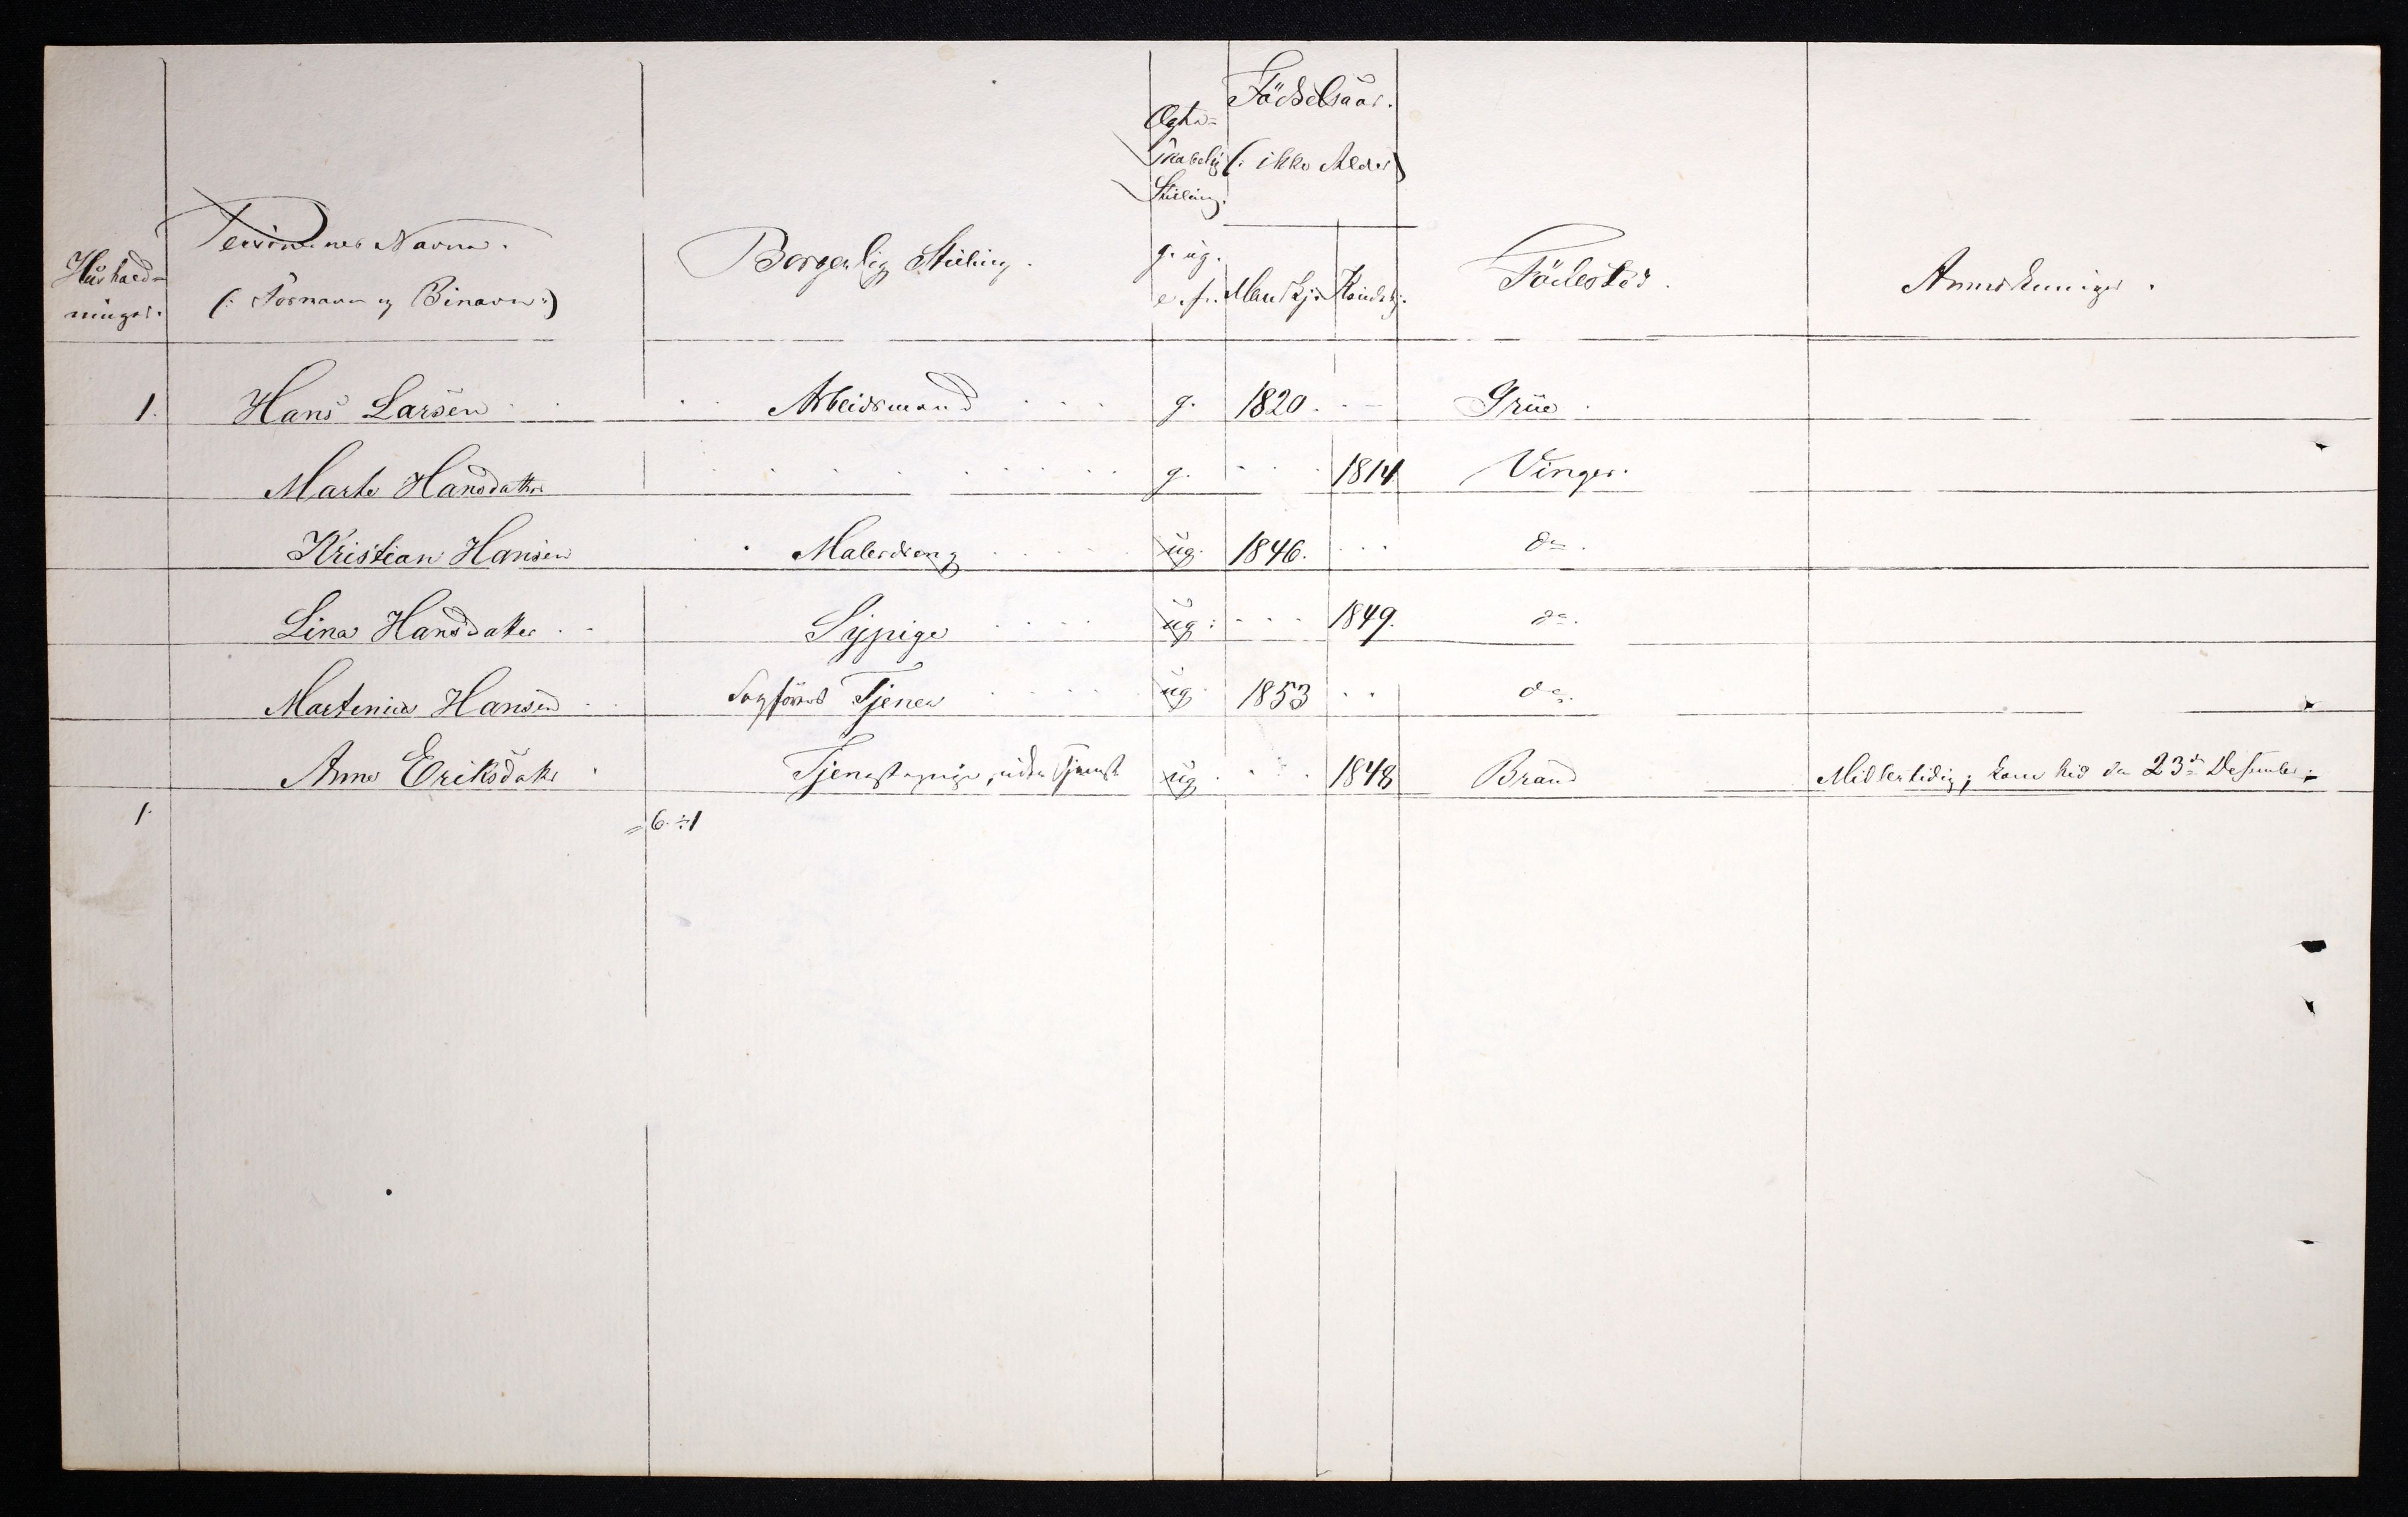 Hushold-
ninger.
Personernes Navne.
(: Fornavn og Binavn:)
Borgerlig Stilling.
Ægte-
skabelig
Stilling.
g. ug.
e. f.
Födselsaar.
(: ikke Alder)
Mandkjø. Kvindekj.
Födested.
Anmerkninger.
1. Hans Larsen Arbeidsmand g. 1820. Grue
Marte Hansdatter g. 1814 Vinger.
Kristian Hansen Malerdreng ug. 1846. do.
Lina Hansdatter Sypige ug. 1849. do.
Martinius Hansen Sagförers Tjener ug. 1853 do.
Anne Eriksdatter Tjenestepige, uden Tjeneste ug 1848 Brand Midlertidig; kom hid den 23de Desember.
1. = 6. ÷ 1